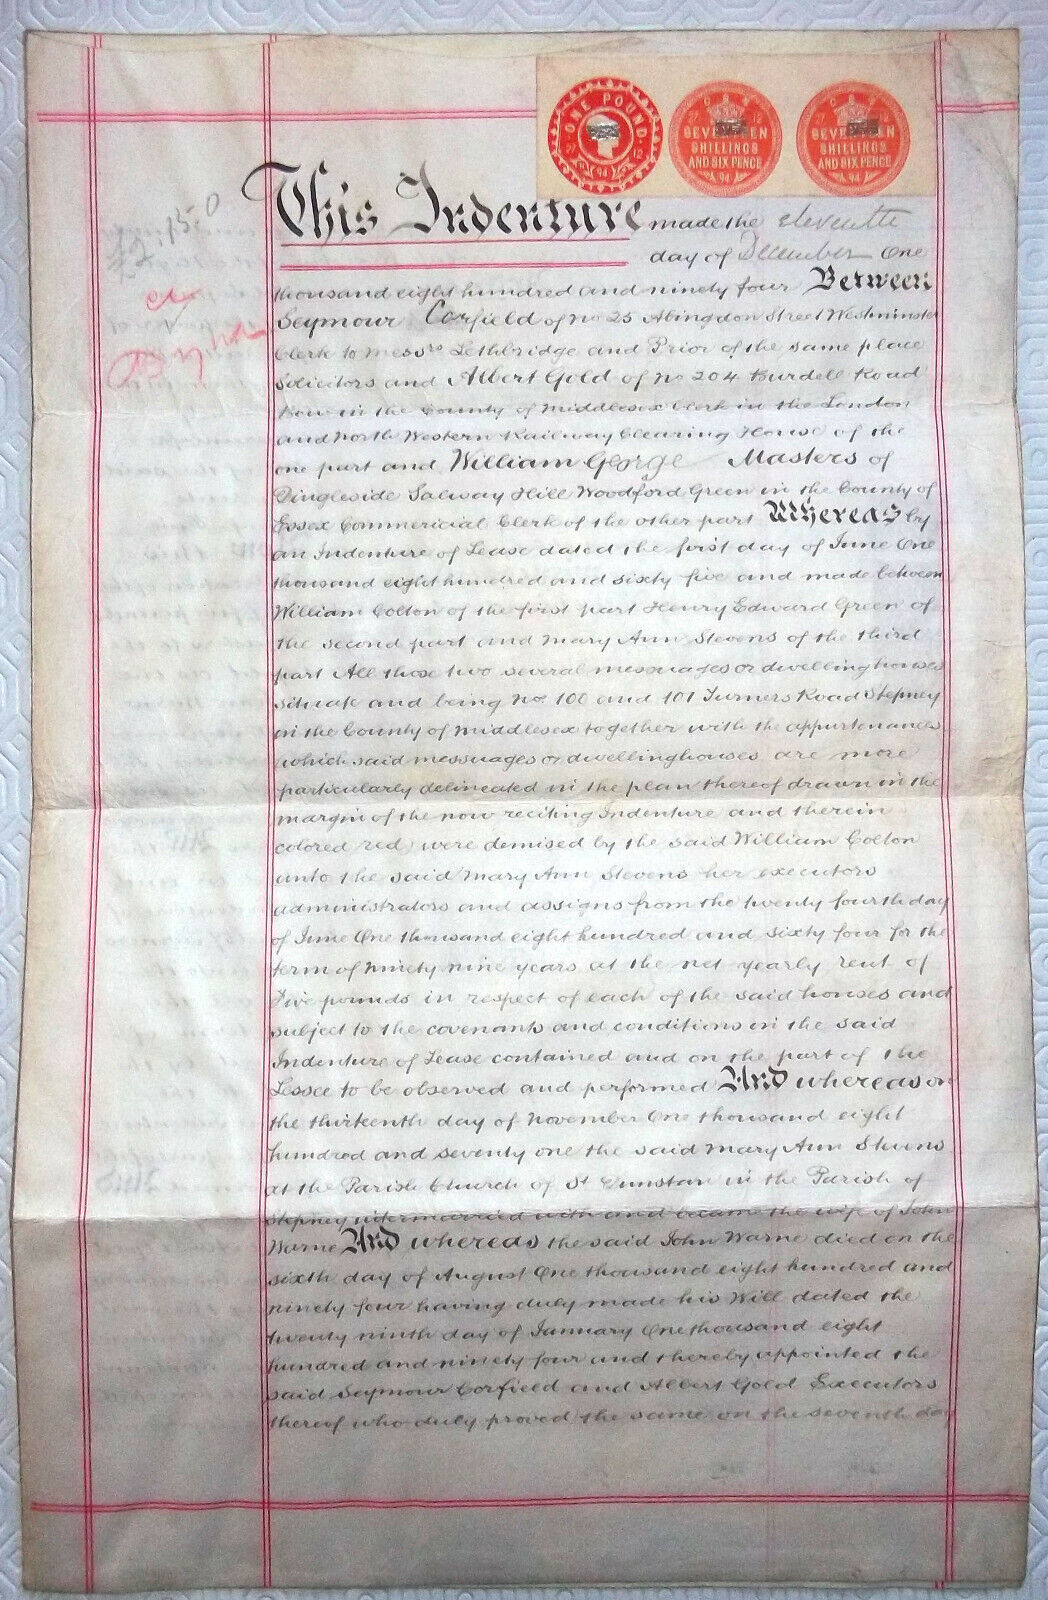 ONE POUND
27 12
94
27 12
SEVENTEEN
SHILLINGS
AND SIX PENCE
94
27 12
SEVENTEEN
SHILLINGS
AND SIX PENCE
94
£2.15.0
This Indenture made the eleventh
day of December One
thousand eight hundred and ninety four Between
Seymour Corfield of No 25 Abingdon Street Westminster
Clerk to Messrs Lethbridge and Prior of the same place
Solicitors and Albert Gold of No 204 Burdell Road
Bow in the County of Middlesex Clerk in the London
and North Western Railway Clearing House of the
one part and William George Masters of
Dingleside Salway Hill Woodford Green in the County of
Essex Commercial Clerk of the other part Whereas by
an Indenture of Lease dated the first day of June One
thousand eight hundred and sixty five and made between
William Colton of the first part Henry Edward Green of
the second part and Mary Ann Stevens of the third
part All those two several messuages or dwellinghouses
situate and being Nos 100 and 101 Turners Road Stepney
in the County of Middlesex together with the appurtenances
which said messuages or dwellinghouses are more
particularly delineated in the plan thereof drawn in the
margin of the now reciting Indenture and therein
colored red were demised by the said William Colton
unto the said Mary Ann Stevens her executors
administrators and assigns from the twenty fourth day
of June One thousand eight hundred and sixty four for the
term of Ninety nine years at the net yearly rent of
Five pounds in respect of each of the said houses and
subject to the covenants and conditions in the said
Indenture of Lease contained and on the part of the
Lessee to be observed and performed And whereas on
the thirteenth day of November One thousand eight
hundred and seventy one the said Mary Ann Stevens
at the Parish Church of St Dunstan in the Parish of
Stepney intermarried with and became the wife of John
Warne And whereas the said John Warne died on the
sixth day of August One thousand eight hundred and
ninety four having duly made his Will dated the
twenty ninth day of January One thousand eight
hundred and ninety four and thereby appointed the
said Seymour Corfield and Albert Gold Executors
thereof who duly proved the same on the seventh day